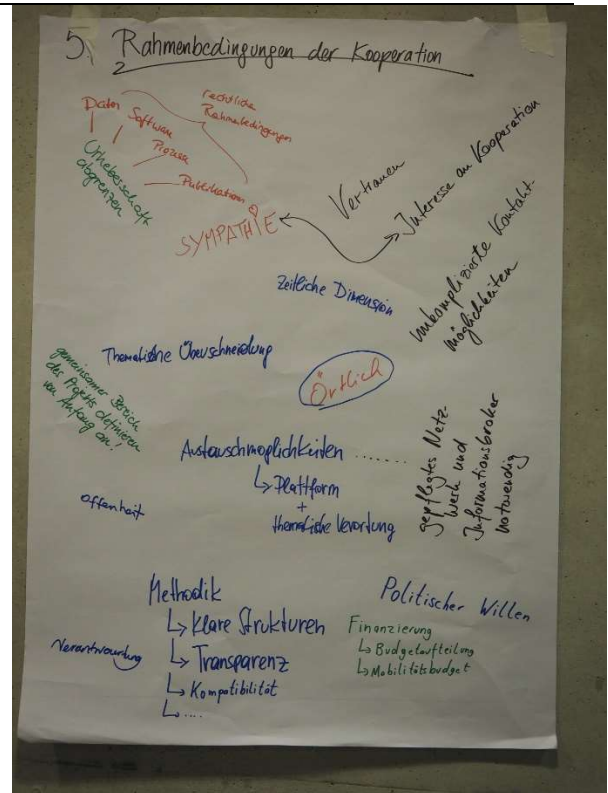 5. Rahmenbedingungen der Kooperation
2
Daten
Software
Prozesse
Publikation
rechtliche
Rahmebedingungen
Urheberschaft
abgrenzen
SYMPATHIE
Vertrauen
Interesse an Kooperation
unkomplizierte Kontakt-
möglichkeiten
Zeitliche Dimension
Thematische Überschneidung
Örtlich
gemeinsamer Bereich
des Projekts definieren
von Anfang an!
Austauschmöglichkeiten ......
↳ Plattform
+
thematische Verortung
gepflegtes Netz-
werk und
Informationsbroker
notwendig
Offenheit
Methodik
↳ Klare Strukturen
↳ Transparenz
↳ Kompatibilität
↳ ....
Verantwortung
Politischer Willen
Finanzierung
↳ Budgetaufteilung
↳ Mobilitätsbudget